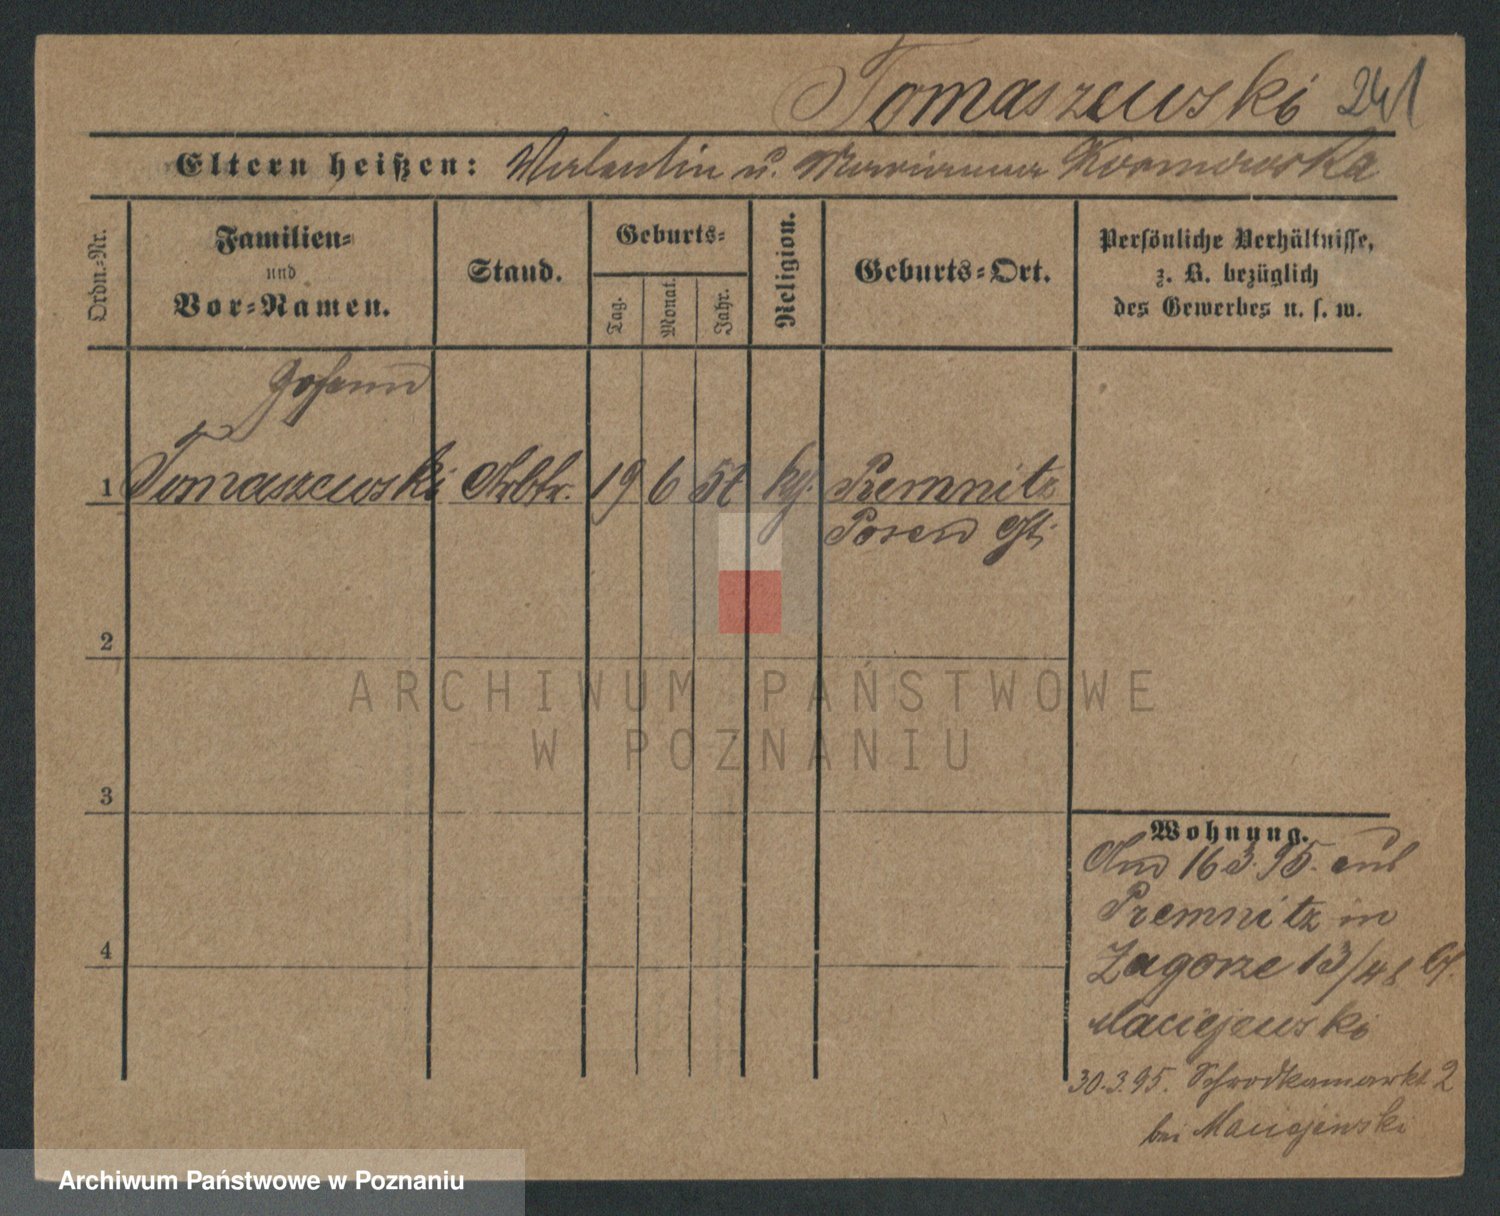 Tomaszewski 241
Eltern heißen: Valentin u. Marianna Kormowska
Ordn.-Nr.
Familien-
und
Vor-Namen.
Stand.
Geburts-
Tag.
Monat.
Jahr.
Religion.
Geburts-Ort.
Persönliche Verhältnisse,
z. B. bezüglich
des Gewerbes u. s. w.
Johann
1 Tomaszewski Arbtr. 19 6 57 kj. Premnitz
Posen Ost
2
3
4
Wohnung.
Am 16 3. 95. aus
Premnitz in
Zagorze 13/14 b.
Maciejewski
30.3.95. Schrodkamarkt 2
bei Maciejewski
ARCHIWUM PAŃSTWOWE
W POZNANIU
Archiwum Państwowe w Poznaniu